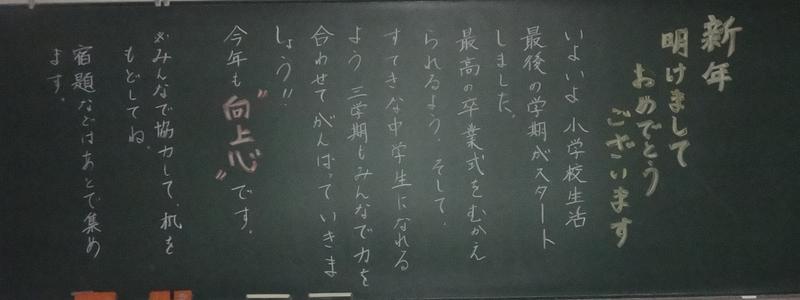 新年
明けまして
おめでとう
ございます
いよいよ小学校生活
最後の学期がスタート
しました。
最高の卒業式をむかえ
られるよう、そして、
すてきな中学生になれる
よう三学期もみんなで力を
合わせてがんばっていきま
しょう!!
今年も"向上心"です。
※みんなで協力して、机を
もどしてね。
宿題などはあとで集め
ます。